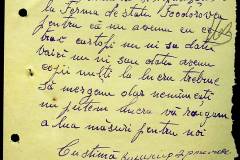 la Ferma de Stat Teodorovca
pentru că nu avem cu ce
trăi cartofi nu ni sau dat
banii nu ni sau dat avem
copii mulți la lucru trebue
Să mergem dar nemâncați
nu putem lucra vă rugăm
a lua măsuri pentru noi
Cu stimă